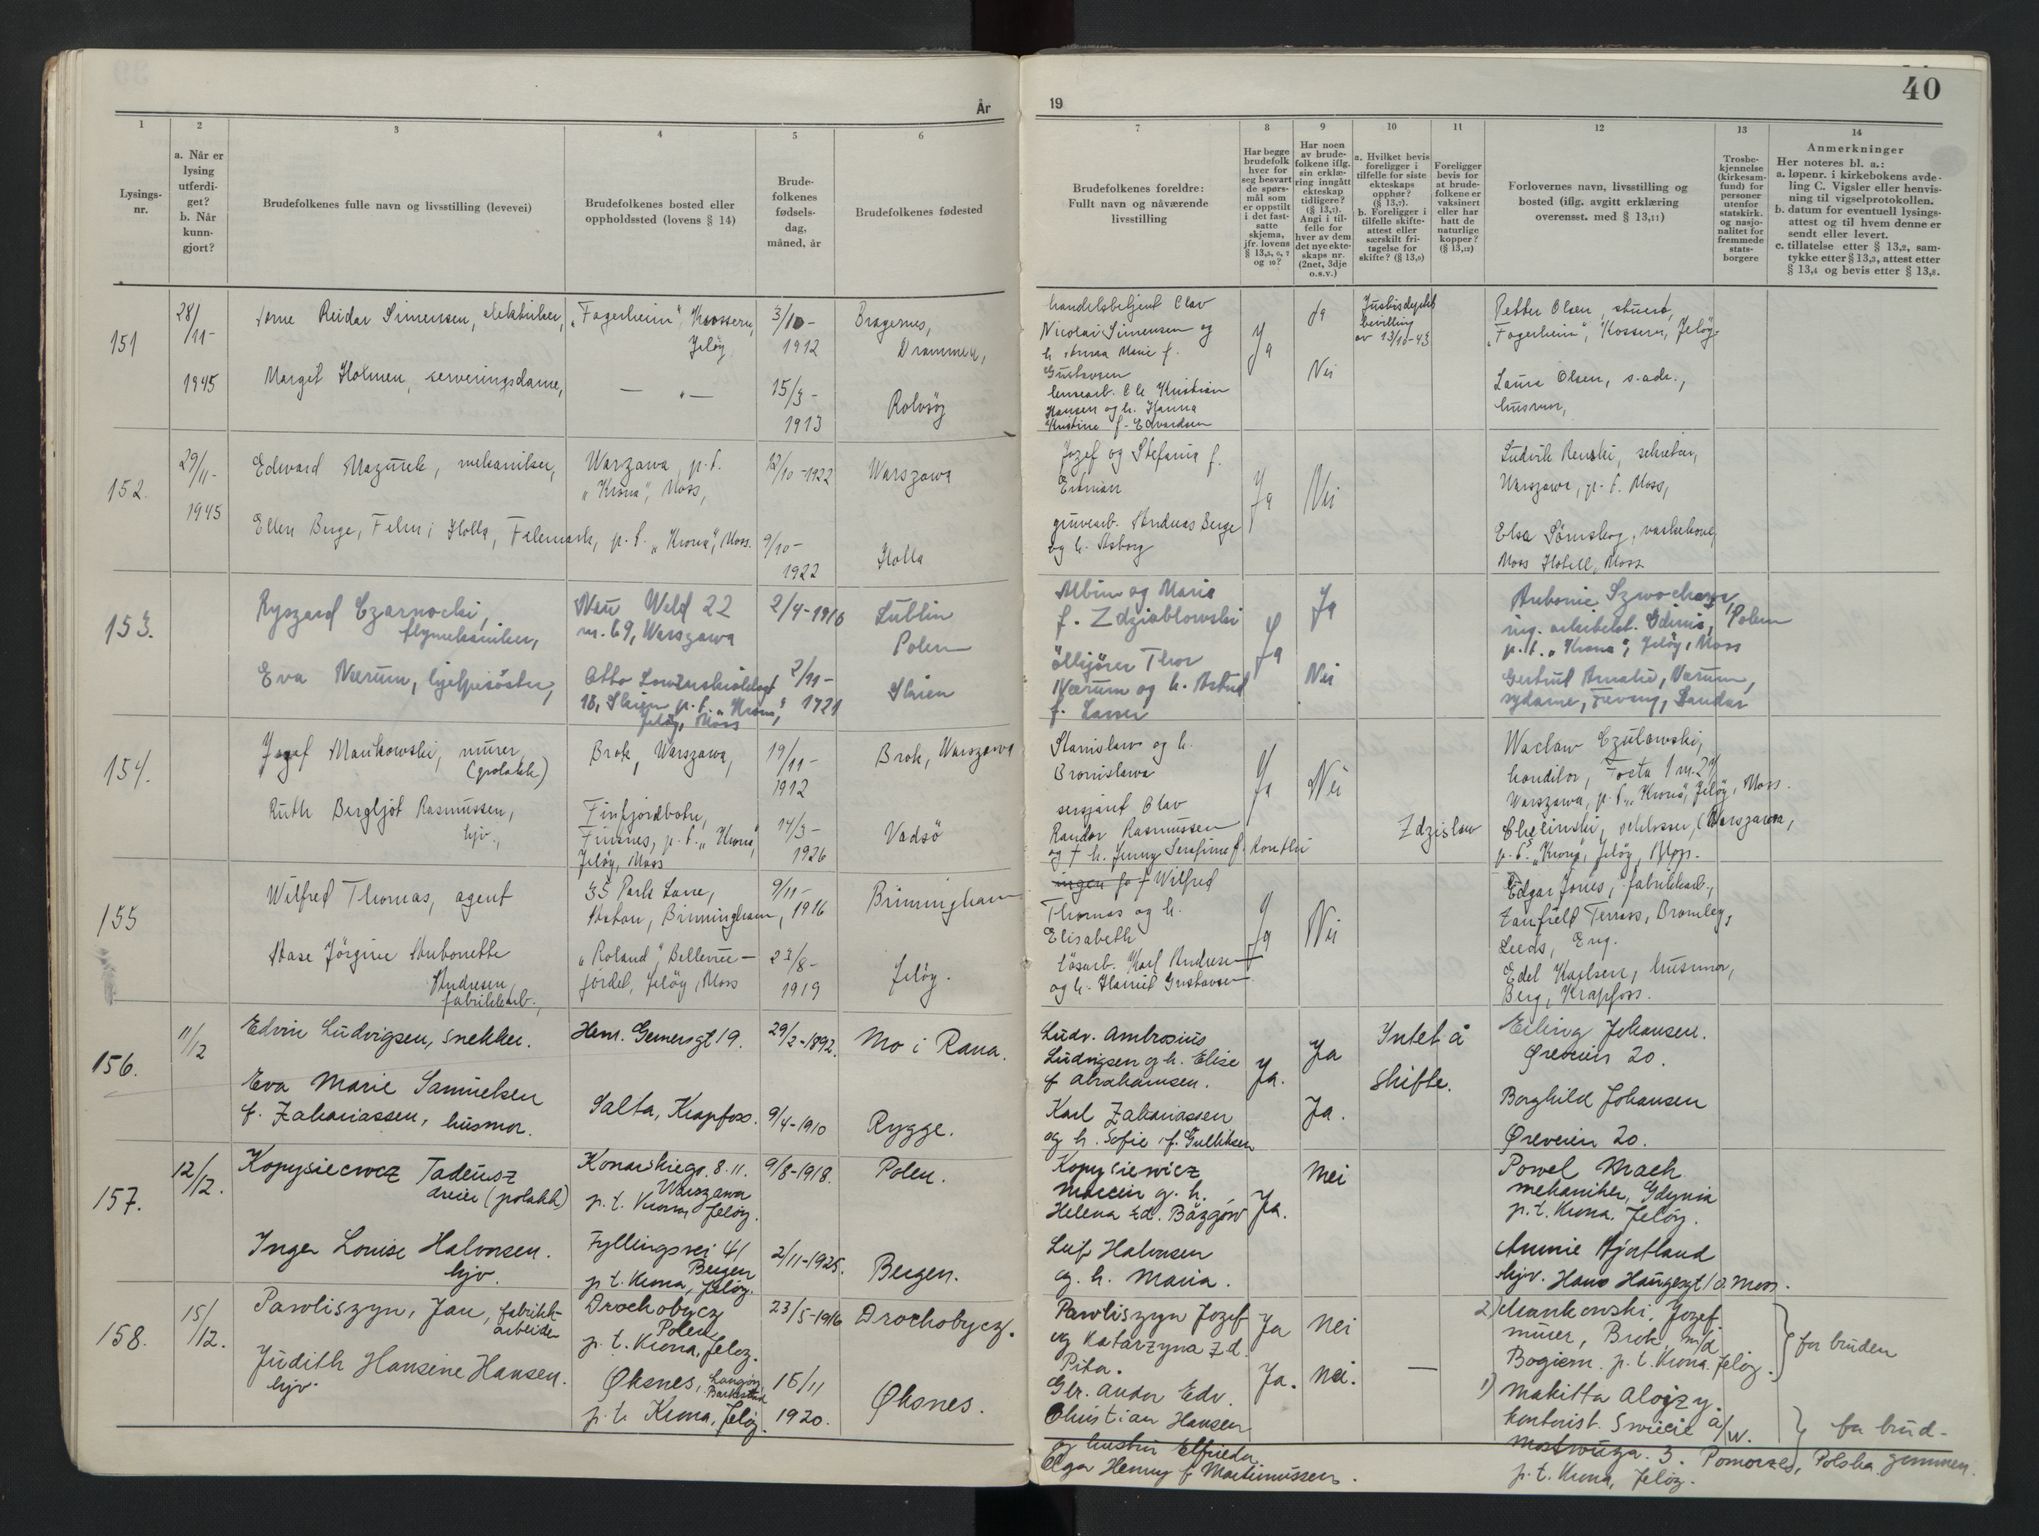 År
1
2
3
4
5
6
Lysings-
nr.
a. Når er
lysing
utferdi-
get?
b. Når
kunn-
gjort?
Brudefolkenes fulle navn og livsstilling (levevei)
Brudefolkenes bosted eller
oppholdssted (lovens § 14)
Brude-
folkenes
fødsels-
dag,
måned, år
Brudefolkenes fødested
151
28/
11-
1945
Arne Reidar Simensen, elektriker,
"Fagerheim", Kossern,
Jeløy
3/10-
1912
Bragernes,
Drammen,
Margit Holmen, serveringsdame,
— " —
15/3-
1913
Rolvsöy
152.
29/
11-
1945
Edward Mazurek, mekaniker,
Warzawa, p.t.
"Krona", Moss,
12/10-1922
Warszawa
Ellen Berge, Felm i Holla, Telemark, p.t. "Krona", Moss.
9/10-
1922
Holla
153.
Ryszard Czarnocki,
flymekaniker,
Nau Weld 22
m. 69, Warszawa
2/4-1916
Lublin
Polen
Eva Nærum, hjelpesöster,
Otto
18, Skien p.t. "Krona",
Jeløy, Moss
2/11-
1921
Skien
154.
Jozef Mankowski, murer
(polakk)
Brok, Warszawa,
19/
11-
1912
Brok, Warszawa
Ruth Bergljot Rasmussen,
hjv.,
Finfjordbotn,
Finsnes, p.t. "Krona",
Jeløy, Moss
14/3-
1926
Vadsö
155
Wilfred Thomas, agent
35 Park Lane,
Aston, Birmingham,
9/11-
1916
Birmingham
Aase Jörgine Antonette
Andresen,
fabrikkarb.,
"Roland", Bellevue-
jordet, Jeløy, Moss
23/8-
1919
Jeløy.
156.
11/12
Edvin Ludvigsen, snekker.
Hen. Gernersgt 19.
29/2-1892.
Mo i Rana.
Eva Marie Samuelsen
f. Zakariassen, husmor.
Salta, Krapfoss.
9/4-1910
Rygge.
157.
12/
12.
Kopysiecwcz Tadeusz
dreier (polakk)
Konarskiego. 8. 11.
Warszawa
p.t. Krona, Jeløy.
9/8-1918.
Polen.
Inger Louise Halvorsen.
hjv.
Fyllingsvei 41
Bergen
p.t. Krona, Jeløy.
2/11-1925.
Bergen.
158.
15/
12.
Pawliszyn, Jan, fabrikk-
arbeider
Drochobycz
Polen
p.t. Krona, Jeløy.
23/5-1916
Drochobycz.
Judith Hansine Hansen.
hjv.
Øksnes, Langöy
p.t. Krona, Jeløy.
15/11
1920.
Øksnes.
19
40
7
8
9
10
11
12
13
14
Brudefolkenes foreldre:
Fullt navn og nåværende
livsstilling
Har begge
brudefolk
hver for
seg besvart
de spørs-
mål som
er oppstilt
i det fast-
satte
skjema,
jfr. lovens
§ 13,5, 6, 7
og 10?
Har noen
av brude-
folkene iflg.
sin erklæ-
ring inngått
ekteskap
tidligere?
(§ 13,7).
Angi i til-
felle for
hver av dem
det nye ekte-
skaps nr.
(2net, 3dje
o.s.v.)
a. Hvilket bevis
foreligger i
tilfelle for siste
ekteskaps
opphør?
(§ 13,7).
b. Foreligger i
tilfelle skifte-
attest eller
særskilt fri-
tagelse for
skifte? (§ 13,9)
Foreligger
bevis for
at brude-
folkene er
vaksinert
eller har
hatt de
naturlige
kopper?
(§ 13,12)
Forlovernes navn, livsstilling og
bosted (iflg. avgitt erklæring
overensst. med § 13,11)
Trosbe-
kjennelse
(kirkesam-
fund) for
personer
utenfor
statskirk.
og nasjo-
nalitet for
fremmede
stats-
borgere
Anmerkninger
Her noteres bl. a.:
a. løpenr. i kirkebokens avde-
ling C. Vigsler eller henvis-
ning til vigselprotokollen.
b. datum for eventuell lysings-
attest og til hvem denne er
sendt eller levert.
c. tillatelse etter § 13,2, sam-
tykke etter § 13,3, attest etter
§ 13,4 og bevis etter § 13,8.
handelsbetjent Olav
Nicolai Simensen og
h. Anna Marie f.
Gustavsen
Ja
Ja
Justisdeptets
bevilling
av 13/10-43
Petter Olsen, stuert,
"Fagerheim", Kossern, Jeløy.
lensearb. Ole Kristian
Hansen og h. Hanna
Kristine f. Edvardsen
Nei
Laura Olsen, s.adr.,
husmor,
Jozef og Stefania f.
Ja
Nei
Ludvik Renski, sekretær,
Warszawa, p.t. Moss,
gruvearb. Andreas Berge
og h. Asborg
Else Sørnskog, vaskekone,
Moss Hotell, Moss
Albin og Maria
f. Zdziablowski
Ja
Ja
Antonie
ing. arbeidst. Gdinia, Polen
p.t. "Krona", Jeløy, Moss
Thor
Nærum og h. Astrid
f. Larsen
Nei
Gertrud Amalie, Værum,
sydame, Tveung, Sandar
Stanislaw og h.
Bronislawa
Ja
Nei
Waclaw Czulowski,
konditor, Focta 1 m. 27
Warszawa, p.t. "Krona", Jeløy, Moss.
sersjant Olav
Randor Rasmussen
og † h. Jenny Serafine f. Kontli
Zdzislaw
Checinski, schlosser, (Warszawa,
p.t. "Krona", Jeløy, Moss.
Wilfred
Thomas og h.
Elisabeth
Ja
Nei
Edgar Jones, fabrikkarb.,
Zanfield Terrass, Bromley,
Leeds, Eng.
løsarb. Karl Andresen
og h. Gustavsen
Edel Karlsen, husmor,
Berg, Krapfoss.
Ludv. Ambrosius
Ludvigsen og h. Elise
f Abrahamsen.
Ja.
Ja
Intet å
skifte.
Erling Johansen.
Øreveien 20.
Karl Zakariassen
og h. Sofie f. Gulliksen
Ja.
Borghild Johansen
Øreveien 20.
Kopysiewicz
Marcin og h.
Helena zd. Bazgow
Ja.
Nei
Powel Mach
mekaniker, Gdynia
p.t. Krona. Jeløy.
Leif Halvorsen
og. h. Maria.
Annie Hjortland
hjv. Hans Haugesgt 10. Moss.
Pawliszyn Jozef
og Katarzyna z d.
Pita.
Ja
Nei
2) Mankowski, Jozef.
murer, Brok n/d
Bogiem. p.t. Krona. Jeløy.
for bruden
Gbr. Andor Edv.
Christian Hansen
og hustru Elfrieda
Olga Henny f Martinussen.
Ja.
Nei.
—
1) Makitta Alojzy.
kontorist. Swiecie a/w.
Mostwuza. 3. Pomorze, Polska
p.t. Krona, Jeløy.
for brud-
gommen.